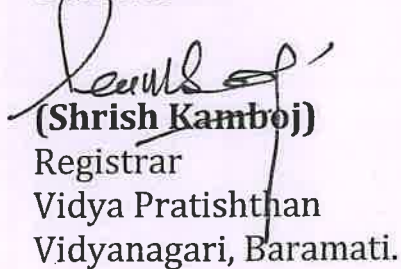 (Shrish Kamboj)
Registrar
Vidya Pratishthan
Vidyanagari, Baramati.